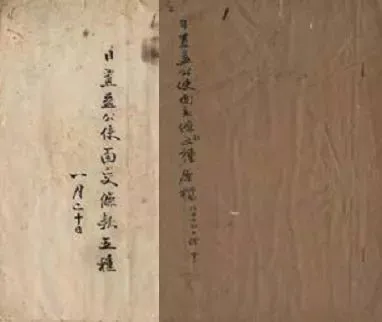 日置益公使面交條款五種原稿
日置益公使面交條款五種
八月二十日